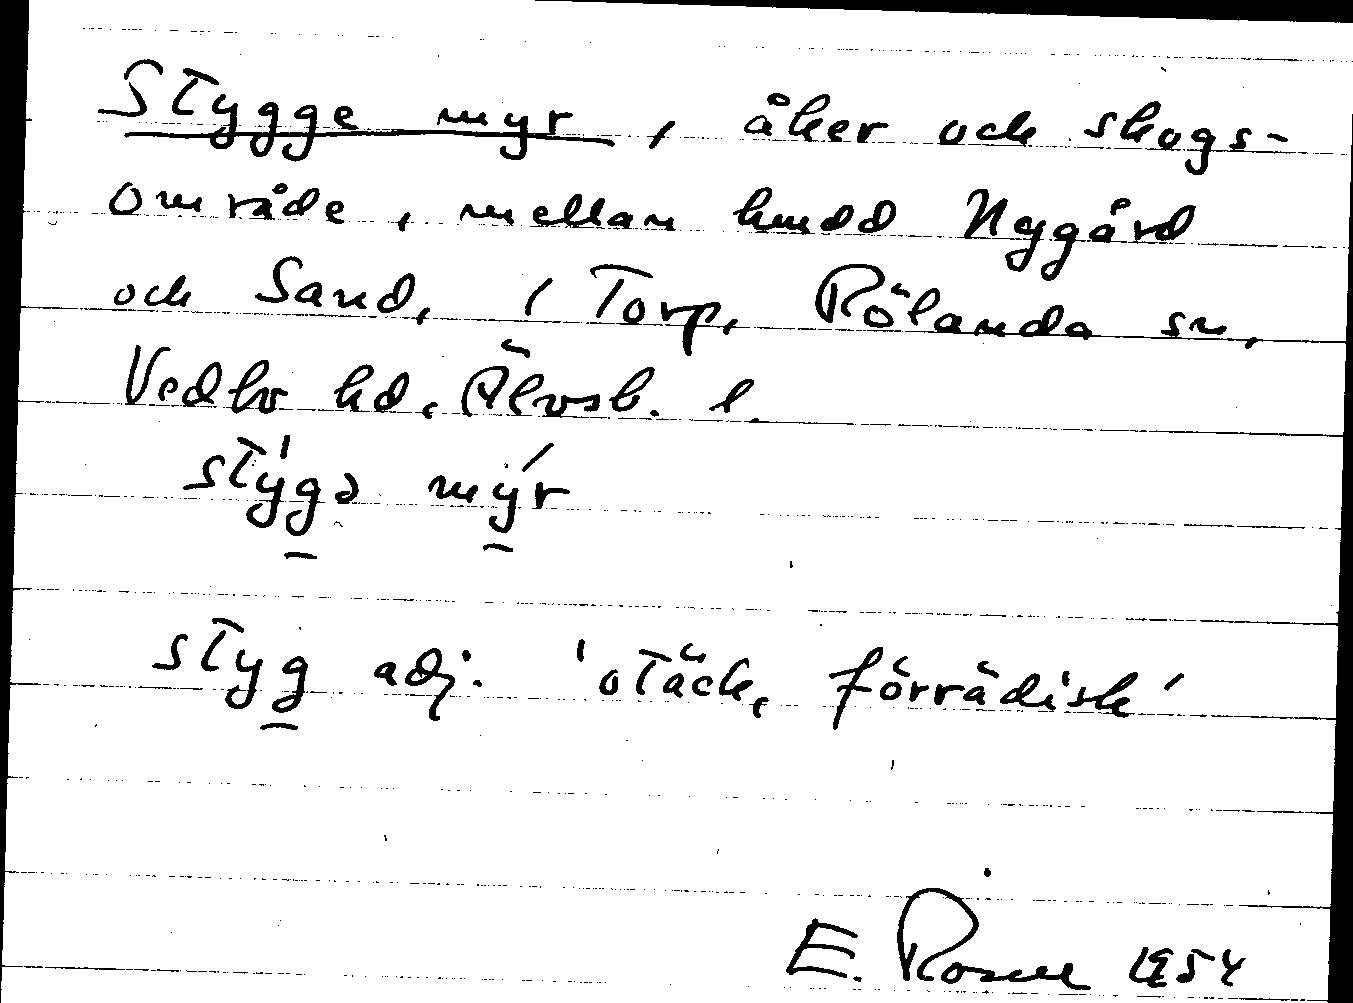 Stygge myr, åker och skogs-
område, mellan hmdd Nygård
och Sand, i Torp, Rölanda sn,
Vedbo hd, Älvsb. l.
stýgə mýr
styg adj. 'otäck, förrädisk'
E. Rosell 1954